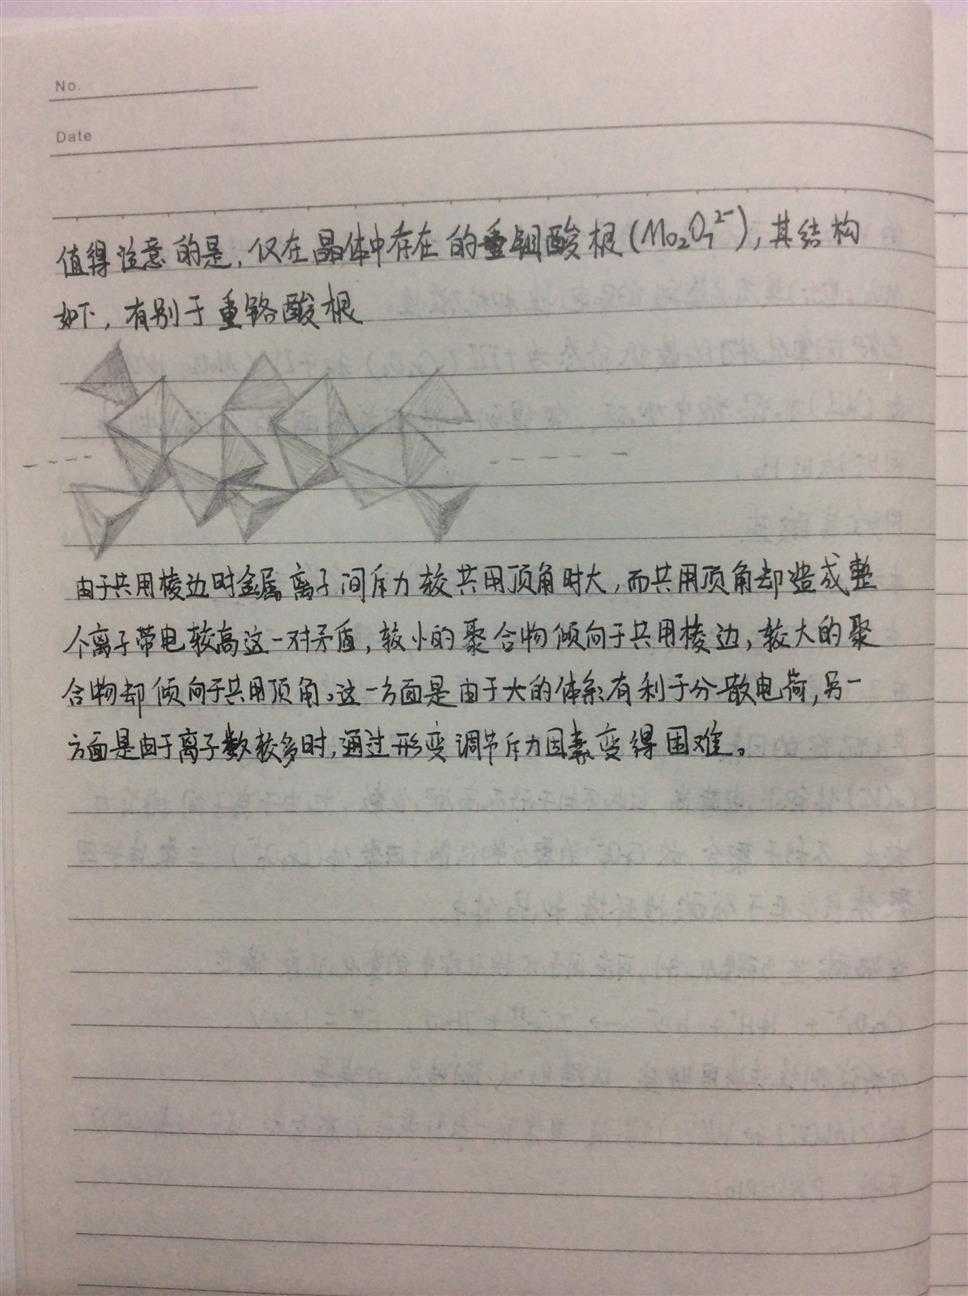 No.
Date
值得注意的是，仅在晶体中存在的重钼酸根(Mo₂O₇²⁻)，其结构
如下，有别于重铬酸根
由于共用棱边时金属离子间斥力较共用顶角时大，而共用顶角却造成整
个离子带电较高这一对矛盾，较小的聚合物倾向于共用棱边，较大的聚
合物却倾向于共用顶角。这一方面是由于大的体系有利于分散电荷，另一
方面是由于离子数较多时，通过形变调节斥力因素变得困难。